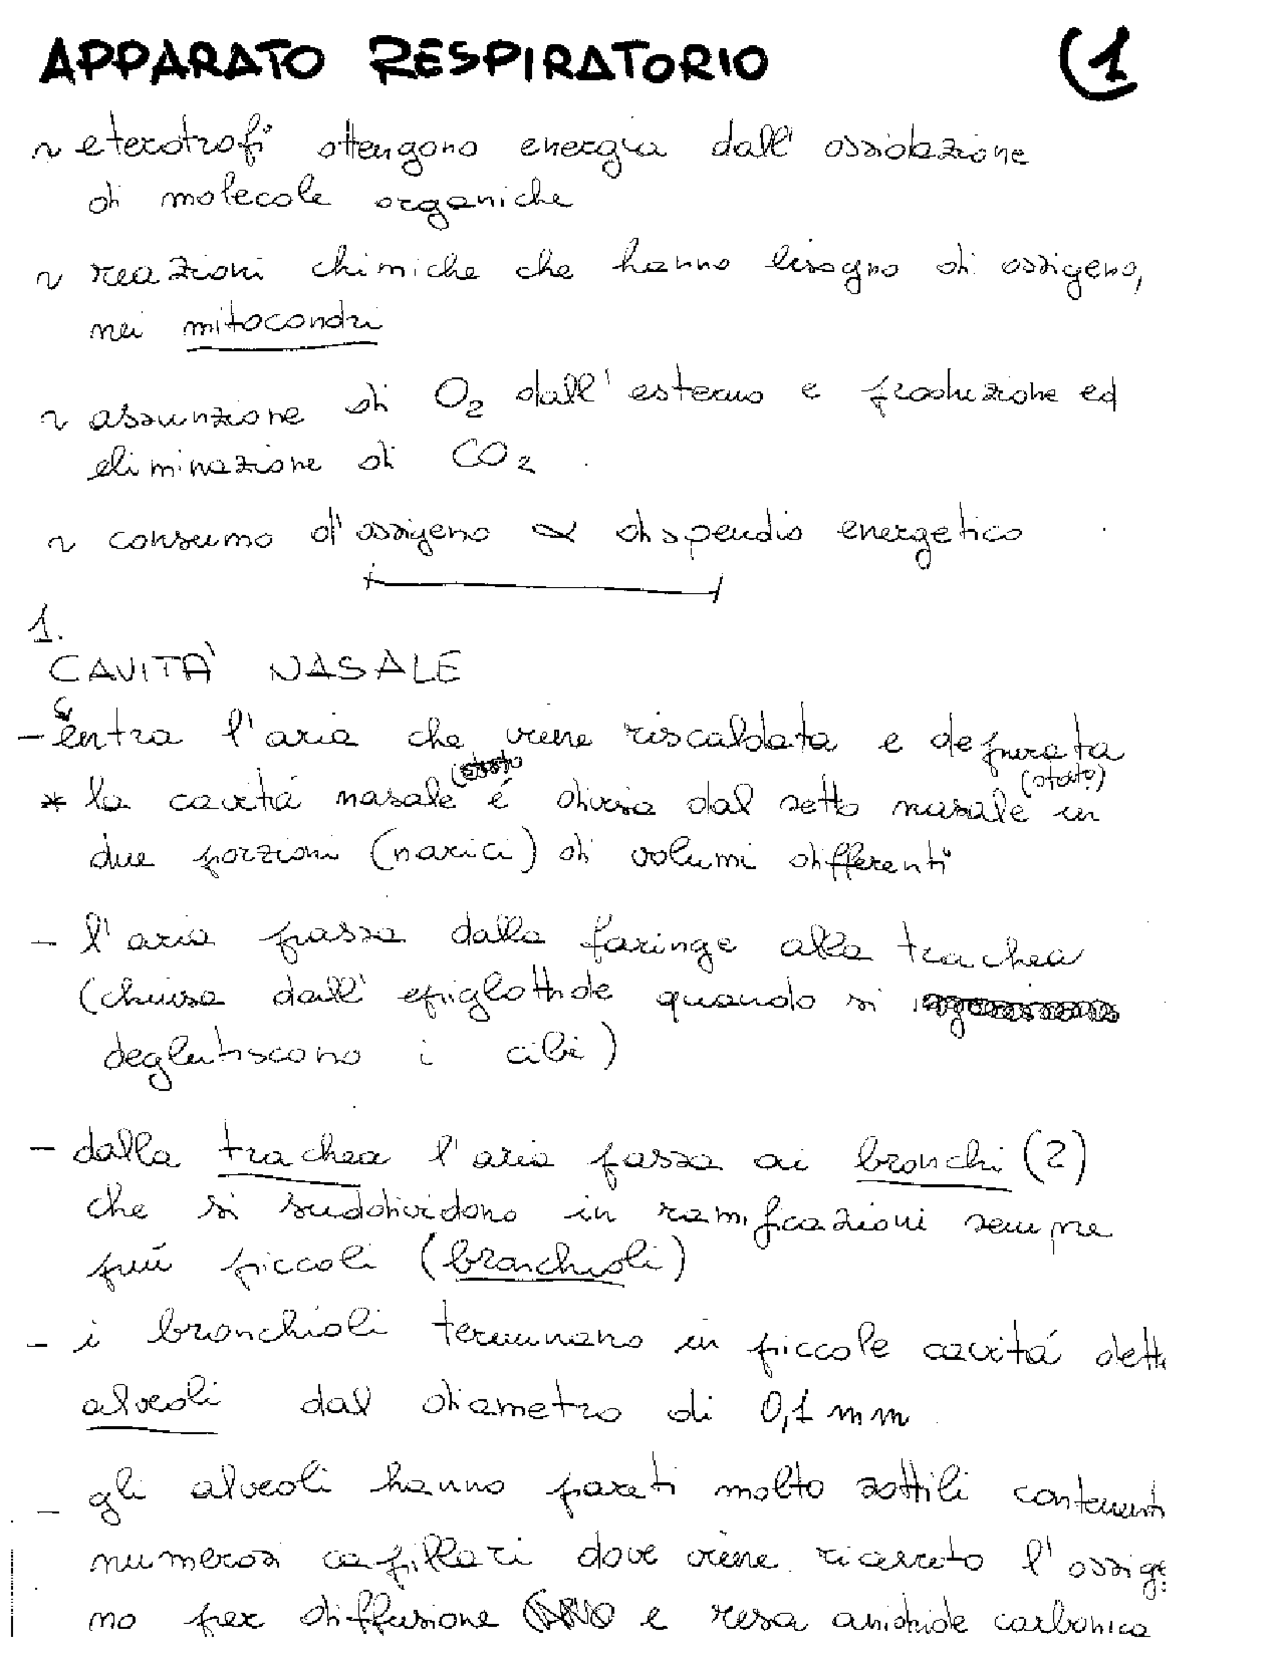 APPARATO RESPIRATORIO (1
~ eterotrofi ottengono energia dall'ossidazione
di molecole organiche
~ reazioni chimiche che hanno bisogno di ossigeno,
nei mitocondri
~ assunzione di O2 dall'esterno e produzione ed
eliminazione di CO2.
~ consumo d'ossigeno ∝ dispendio energetico
1.
CAVITA' NASALE
- entra l'aria che viene riscaldata e depurata
* la cavitá nasale é divisa dal setto nasale (otato?) in
due porzioni (narici) di volumi differenti
- l'aria passa dalla faringe alla trachea
(chiusa dall'epiglottide quando si
deglutiscono i cibi)
- dalla trachea l'aria passa ai bronchi (2)
che si suddividono in ramificazioni sempre
piú piccoli (bronchioli)
- i bronchioli terminano in piccole cavitá dette
alveoli dal diametro di 0,1 mm.
- gli alveoli hanno pareti molto sottili contenenti
numerosi capillari dove viene ricevuto l'ossige
no per diffusione e resa anidride carbonica